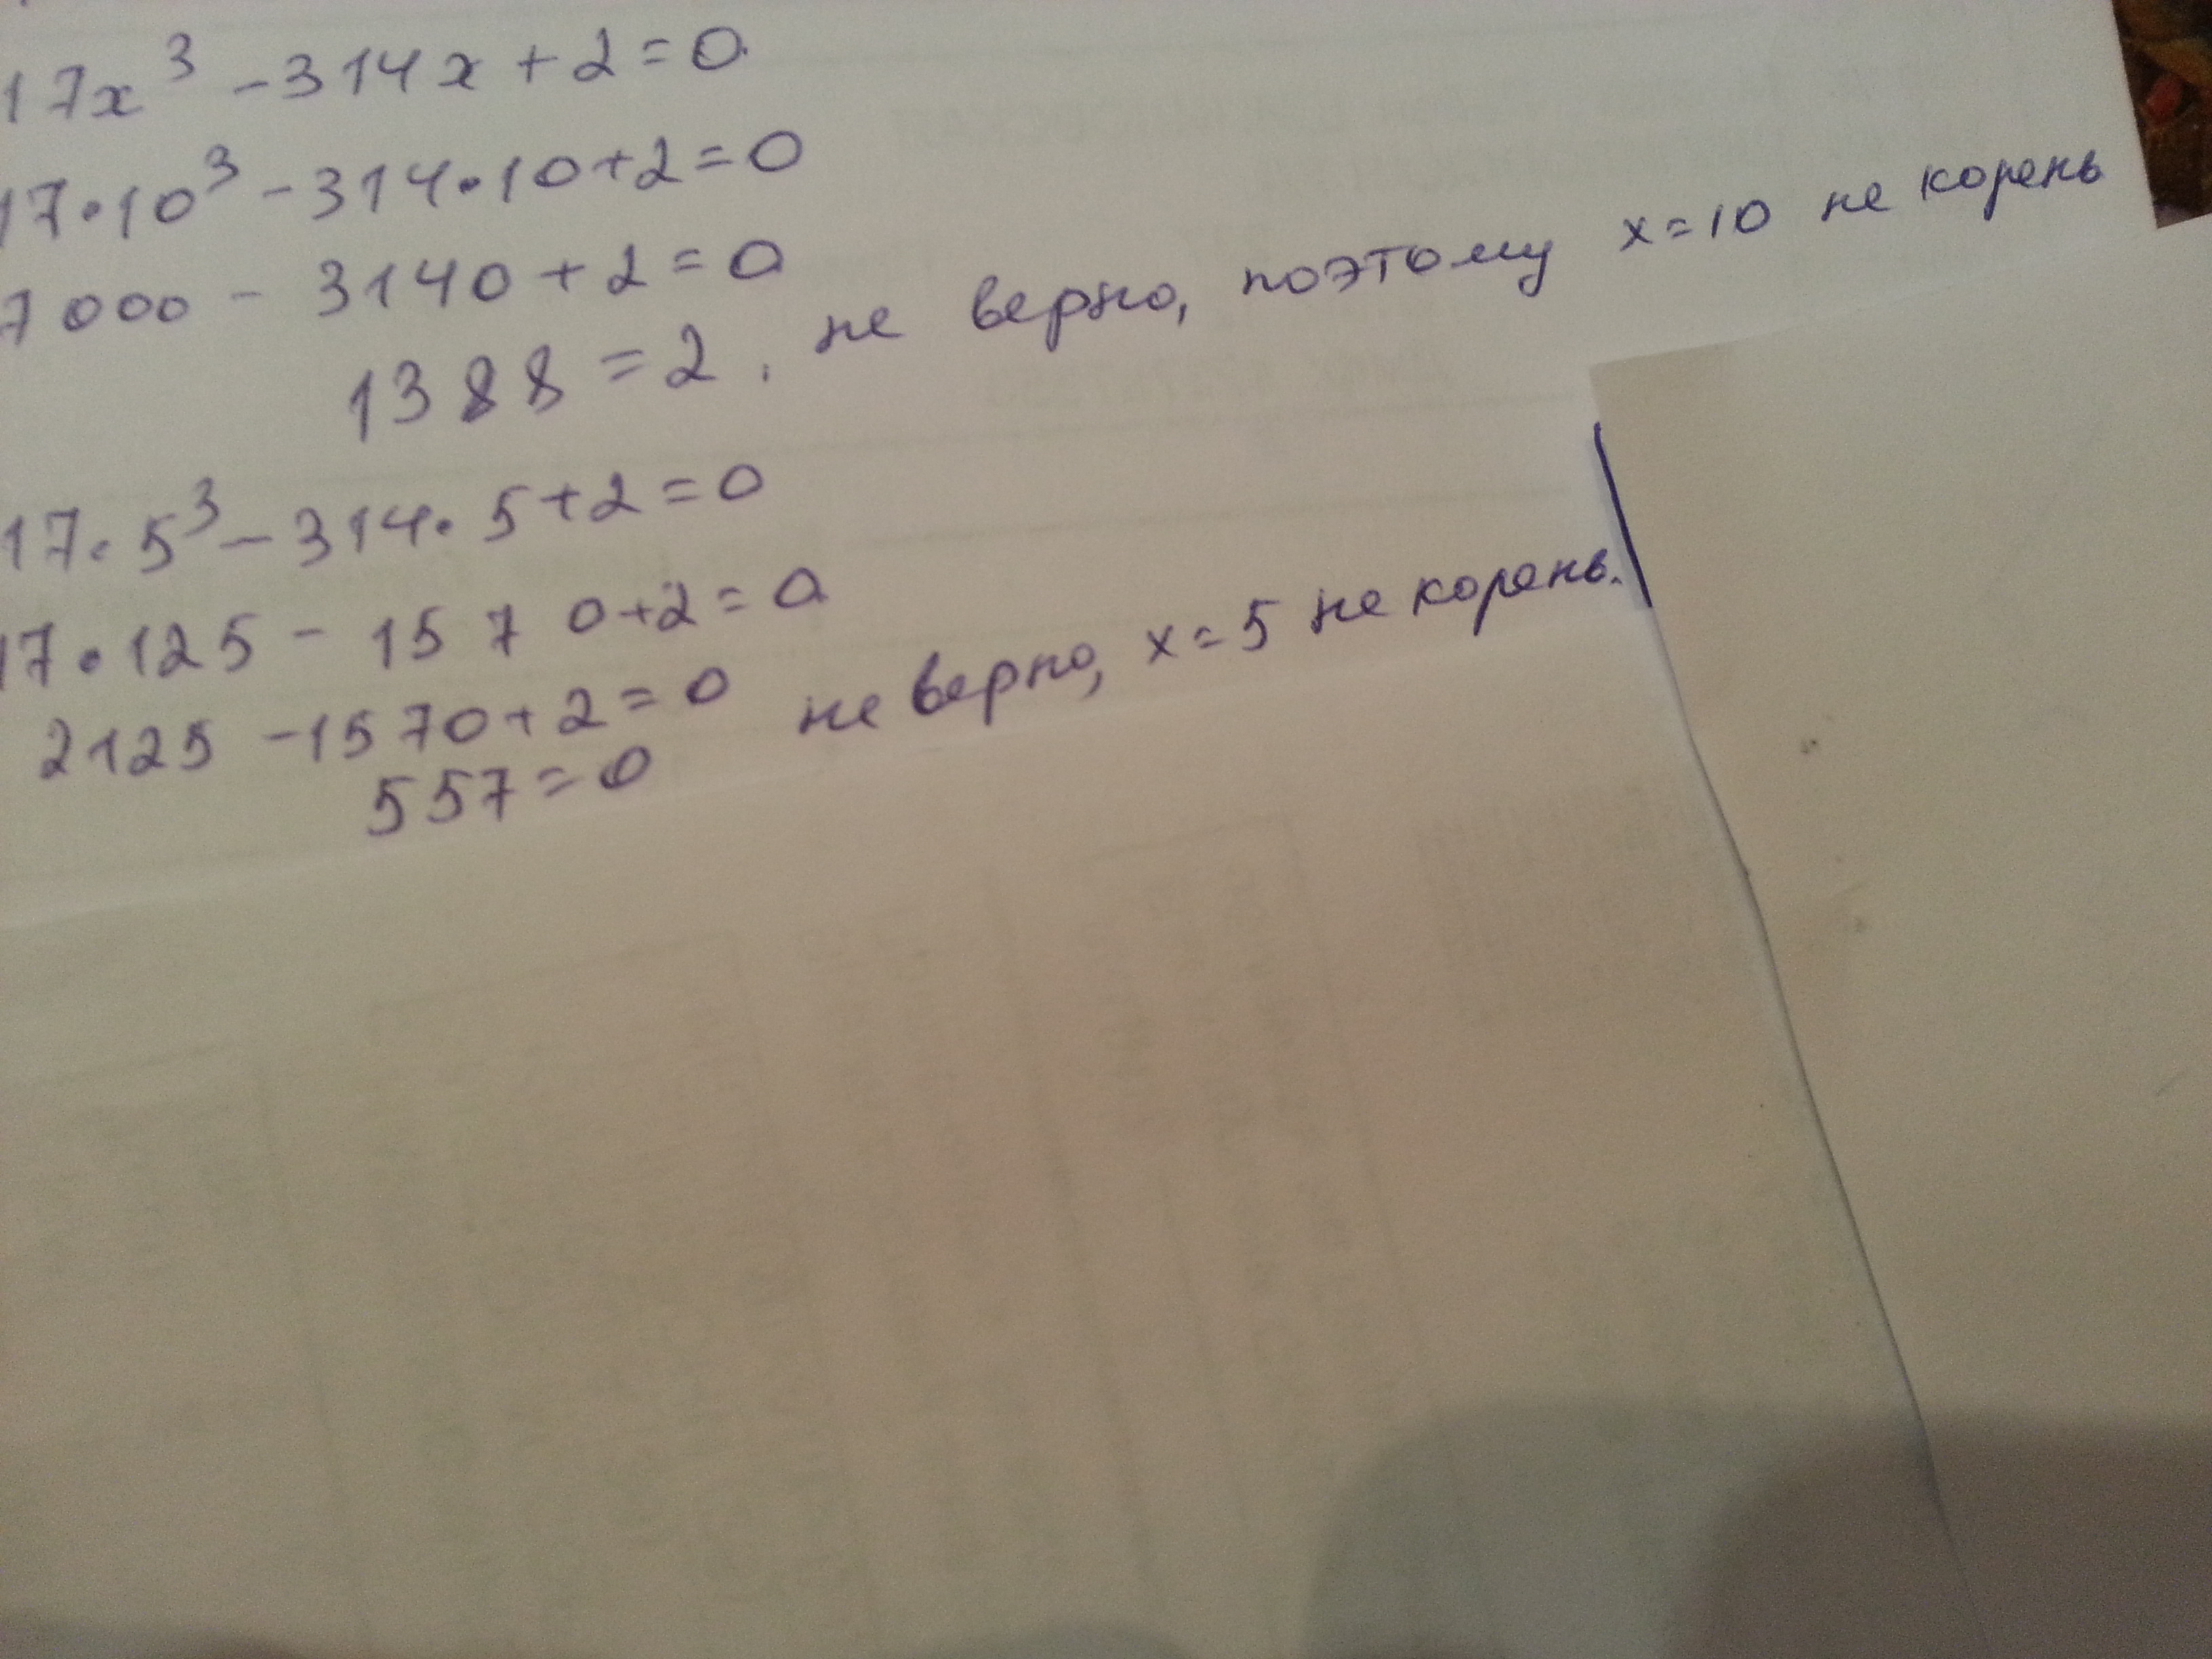 17x³ - 314x + 2 = 0
17·10³ - 314·10 + 2 = 0
7000 - 3140 + 2 = 0
1388 = 2, не верно, поэтому x = 10 не корень
17·5³ - 314·5 + 2 = 0
17·125 - 1570 + 2 = 0
2125 - 1570 + 2 = 0 не верно, x = 5 не корень.
557 = 0